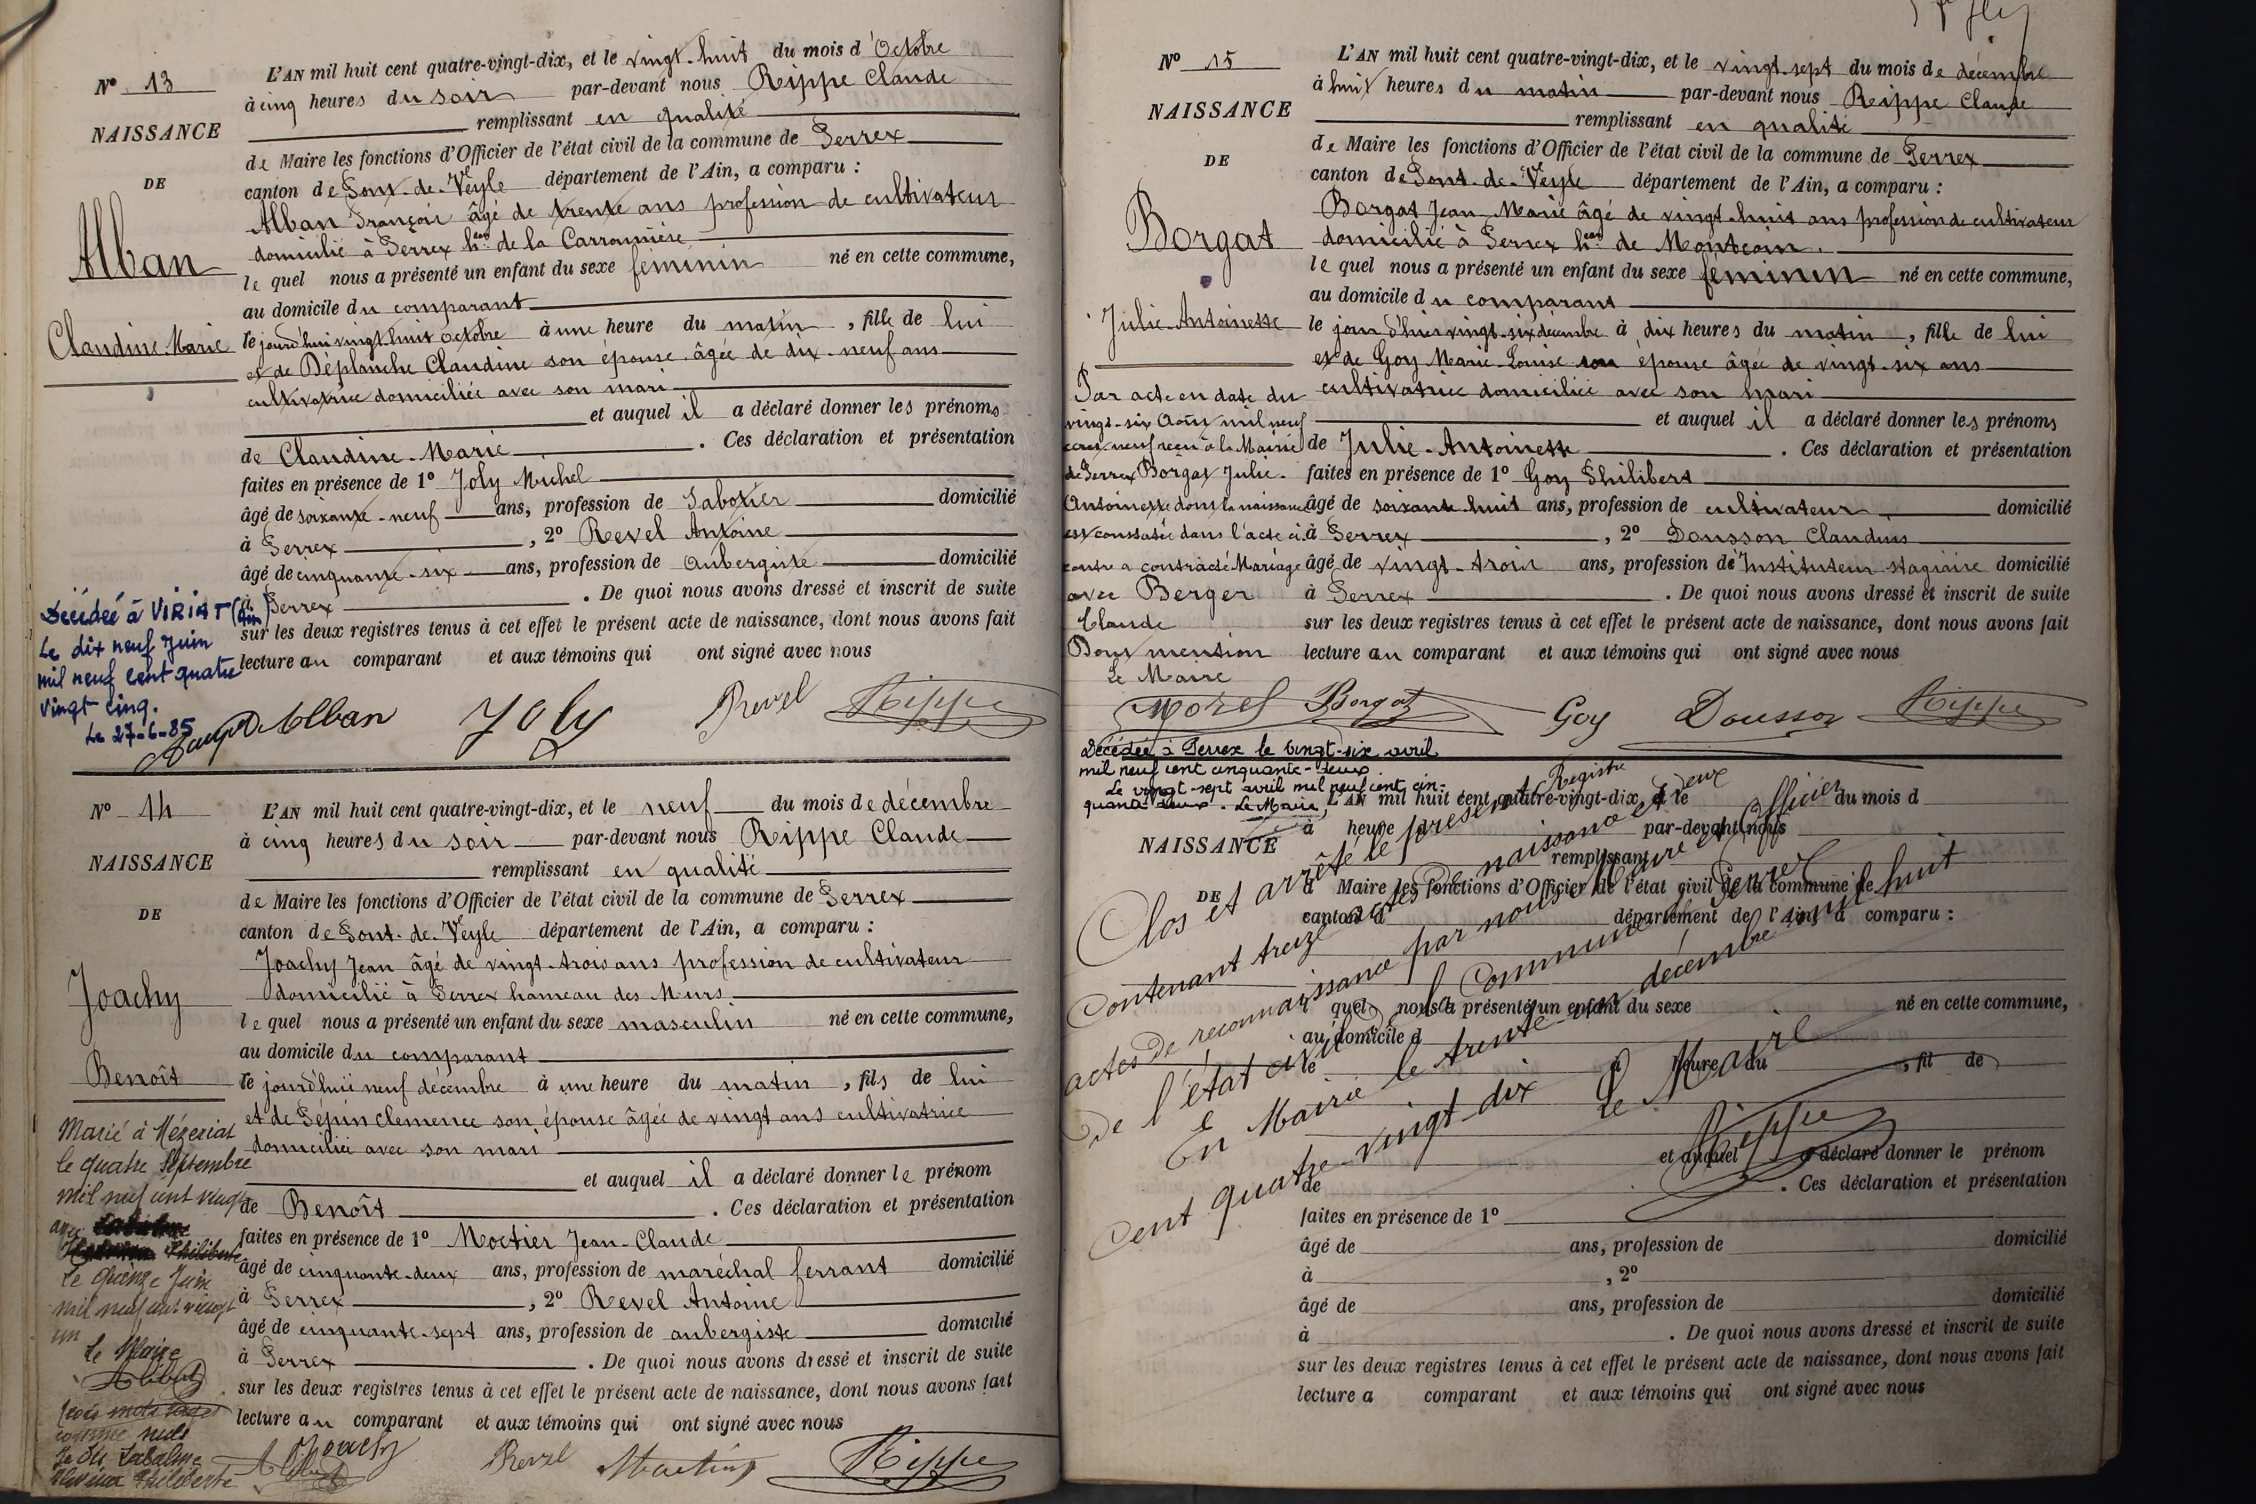 N° 13
NAISSANCE
DE
Alban
Claudine-Marie
L'AN mil huit cent quatre-vingt-dix, et le vingt-huit du mois d'Octobre
à cinq heures du soir par-devant nous Rippe Claude
remplissant en qualité
de Maire les fonctions d'Officier de l'état civil de la commune de Perrex
canton de Pont-de-Veyle département de l'Ain, a comparu :
Alban François âgé de trente ans profession de cultivateur
domicilié à Perrex heau de la Carronnière
lequel nous a présenté un enfant du sexe féminin né en cette commune,
au domicile du comparant
le jourd'hui vingt-huit octobre à une heure du matin, fille de lui
et de Déplanche Claudine son épouse âgée de dix-neuf ans
cultivatrice domiciliée avec son mari
et auquel il a déclaré donner les prénoms
de Claudine-Marie. Ces déclaration et présentation
faites en présence de 1° Joly Michel
âgé de soixante-neuf ans, profession de Sabotier domicilié
à Perrex, 2° Revel Antoine
âgé de cinquante-six ans, profession de Aubergiste domicilié
à Perrex. De quoi nous avons dressé et inscrit de suite
sur les deux registres tenus à cet effet le présent acte de naissance, dont nous avons fait
lecture au comparant et aux témoins qui ont signé avec nous
Décédée à VIRIAT (Ain)
Le dix neuf Juin
mil neuf cent quatre
vingt cinq.
Le 27-6-85
Alban Joly Revel Rippe
N° 14
NAISSANCE
DE
Joachy
Benoît
L'AN mil huit cent quatre-vingt-dix, et le neuf du mois de décembre
à cinq heures du soir par-devant nous Rippe Claude
remplissant en qualité
de Maire les fonctions d'Officier de l'état civil de la commune de Perrex
canton de Pont-de-Veyle département de l'Ain, a comparu :
Joachy Jean âgé de vingt-trois ans profession de cultivateur
domicilié à Perrex hameau des Murs.
lequel nous a présenté un enfant du sexe masculin né en cette commune,
au domicile du comparant
le jourd'hui neuf décembre à une heure du matin, fils de lui
et de Pépin Clemence son épouse âgée de vingt ans cultivatrice
domiciliée avec son mari
et auquel il a déclaré donner le prénom
de Benoît. Ces déclaration et présentation
faites en présence de 1° Moctier Jean-Claude
âgé de cinquante-deux ans, profession de maréchal ferrant domicilié
à Perrex, 2° Revel Antoine
âgé de cinquante-sept ans, profession de aubergiste domicilié
à Perrex. De quoi nous avons dressé et inscrit de suite
sur les deux registres tenus à cet effet le présent acte de naissance, dont nous avons fait
lecture au comparant et aux témoins qui ont signé avec nous
Marié à Mézeriat
le quatre Septembre
mil neuf cent vingt
avec
Philiberte
Le quinze Juin
mil neuf cent vingt
un
Le Maire
trois mots rayés
comme nuls
Joachy Revel Moctier Rippe
N° 15
NAISSANCE
DE
Borgat
Julie-Antoinette
L'AN mil huit cent quatre-vingt-dix, et le vingt-sept du mois de décembre
à huit heures du matin par-devant nous Rippe Claude
remplissant en qualité
de Maire les fonctions d'Officier de l'état civil de la commune de Perrex
canton de Pont-de-Veyle département de l'Ain, a comparu :
Borgat Jean-Marie âgé de vingt-huit ans profession de cultivateur
domicilié à Perrex heau de Montcoin.
lequel nous a présenté un enfant du sexe féminin né en cette commune,
au domicile du comparant
le jour d'hier vingt-six décembre à dix heures du matin, fille de lui
et de Goy Marie-Louise son épouse âgée de vingt-six ans
cultivatrice domiciliée avec son mari
et auquel il a déclaré donner les prénoms
de Julie-Antoinette. Ces déclaration et présentation
faites en présence de 1° Goy Philibert
âgé de soixante-huit ans, profession de cultivateur domicilié
à Perrex, 2° Dousson Claudius
âgé de vingt-trois ans, profession d'Instituteur stagiaire domicilié
à Perrex. De quoi nous avons dressé et inscrit de suite
sur les deux registres tenus à cet effet le présent acte de naissance, dont nous avons fait
lecture au comparant et aux témoins qui ont signé avec nous
Par acte en date du
vingt-six Août mil neuf
cent neuf reçu à la Mairie
de Perrex Borgat Julie-
Antoinette dont la naissance
est constatée dans l'acte ci-
contre a contracté Mariage
avec Berger
Claude
Pour mention
Le Maire
Morel Borgat Goy Dousson Rippe
Décédée à Perrex le vingt-six avril
mil neuf cent cinquante-deux.
Le vingt-sept avril mil neuf cent cin-
quante deux. Le Maire,
NAISSANCE
DE
L'AN mil huit cent quatre-vingt-dix, et le du mois d
à heure d par-devant nous
remplissant
d Maire les fonctions d'Officier de l'état civil de la commune de
canton d département de l'Ain, a comparu :
quel nous a présenté un enfant du sexe né en cette commune,
au domicile d
le à heure du, fil de
et auquel a déclaré donner le prénom
de. Ces déclaration et présentation
faites en présence de 1°
âgé de ans, profession de domicilié
à, 2°
âgé de ans, profession de domicilié
à. De quoi nous avons dressé et inscrit de suite
sur les deux registres tenus à cet effet le présent acte de naissance, dont nous avons fait
lecture a comparant et aux témoins qui ont signé avec nous
Clos et arrêté le présent Registre
Contenant treize actes de naissance et deux
actes de reconnaissance par nous Maire et Officier
de l'état civil de la Commune de Perrex
En Mairie le trente-un décembre mil huit
Cent quatre-vingt-dix Le Maire
Rippe